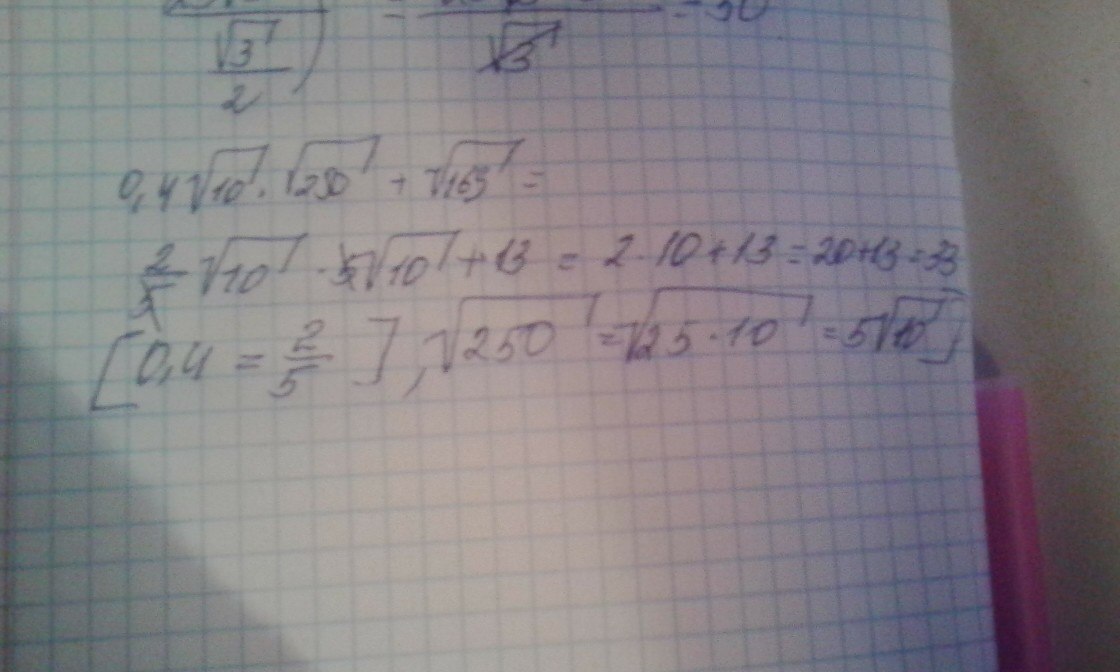 √3 / 2) = / √3 = 50
0,4√10 · √250 + √169 =
2/5 √10 · 5√10 + 13 = 2 · 10 + 13 = 20+13 = 33
[0,4 = 2/5], √250 = √25 · 10 = 5√10]